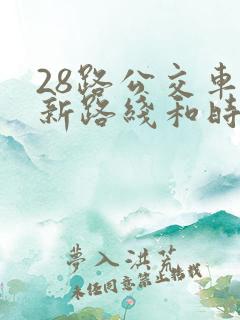 28路公交车
新路线和时
夢入洪荒
未经同意禁止转载